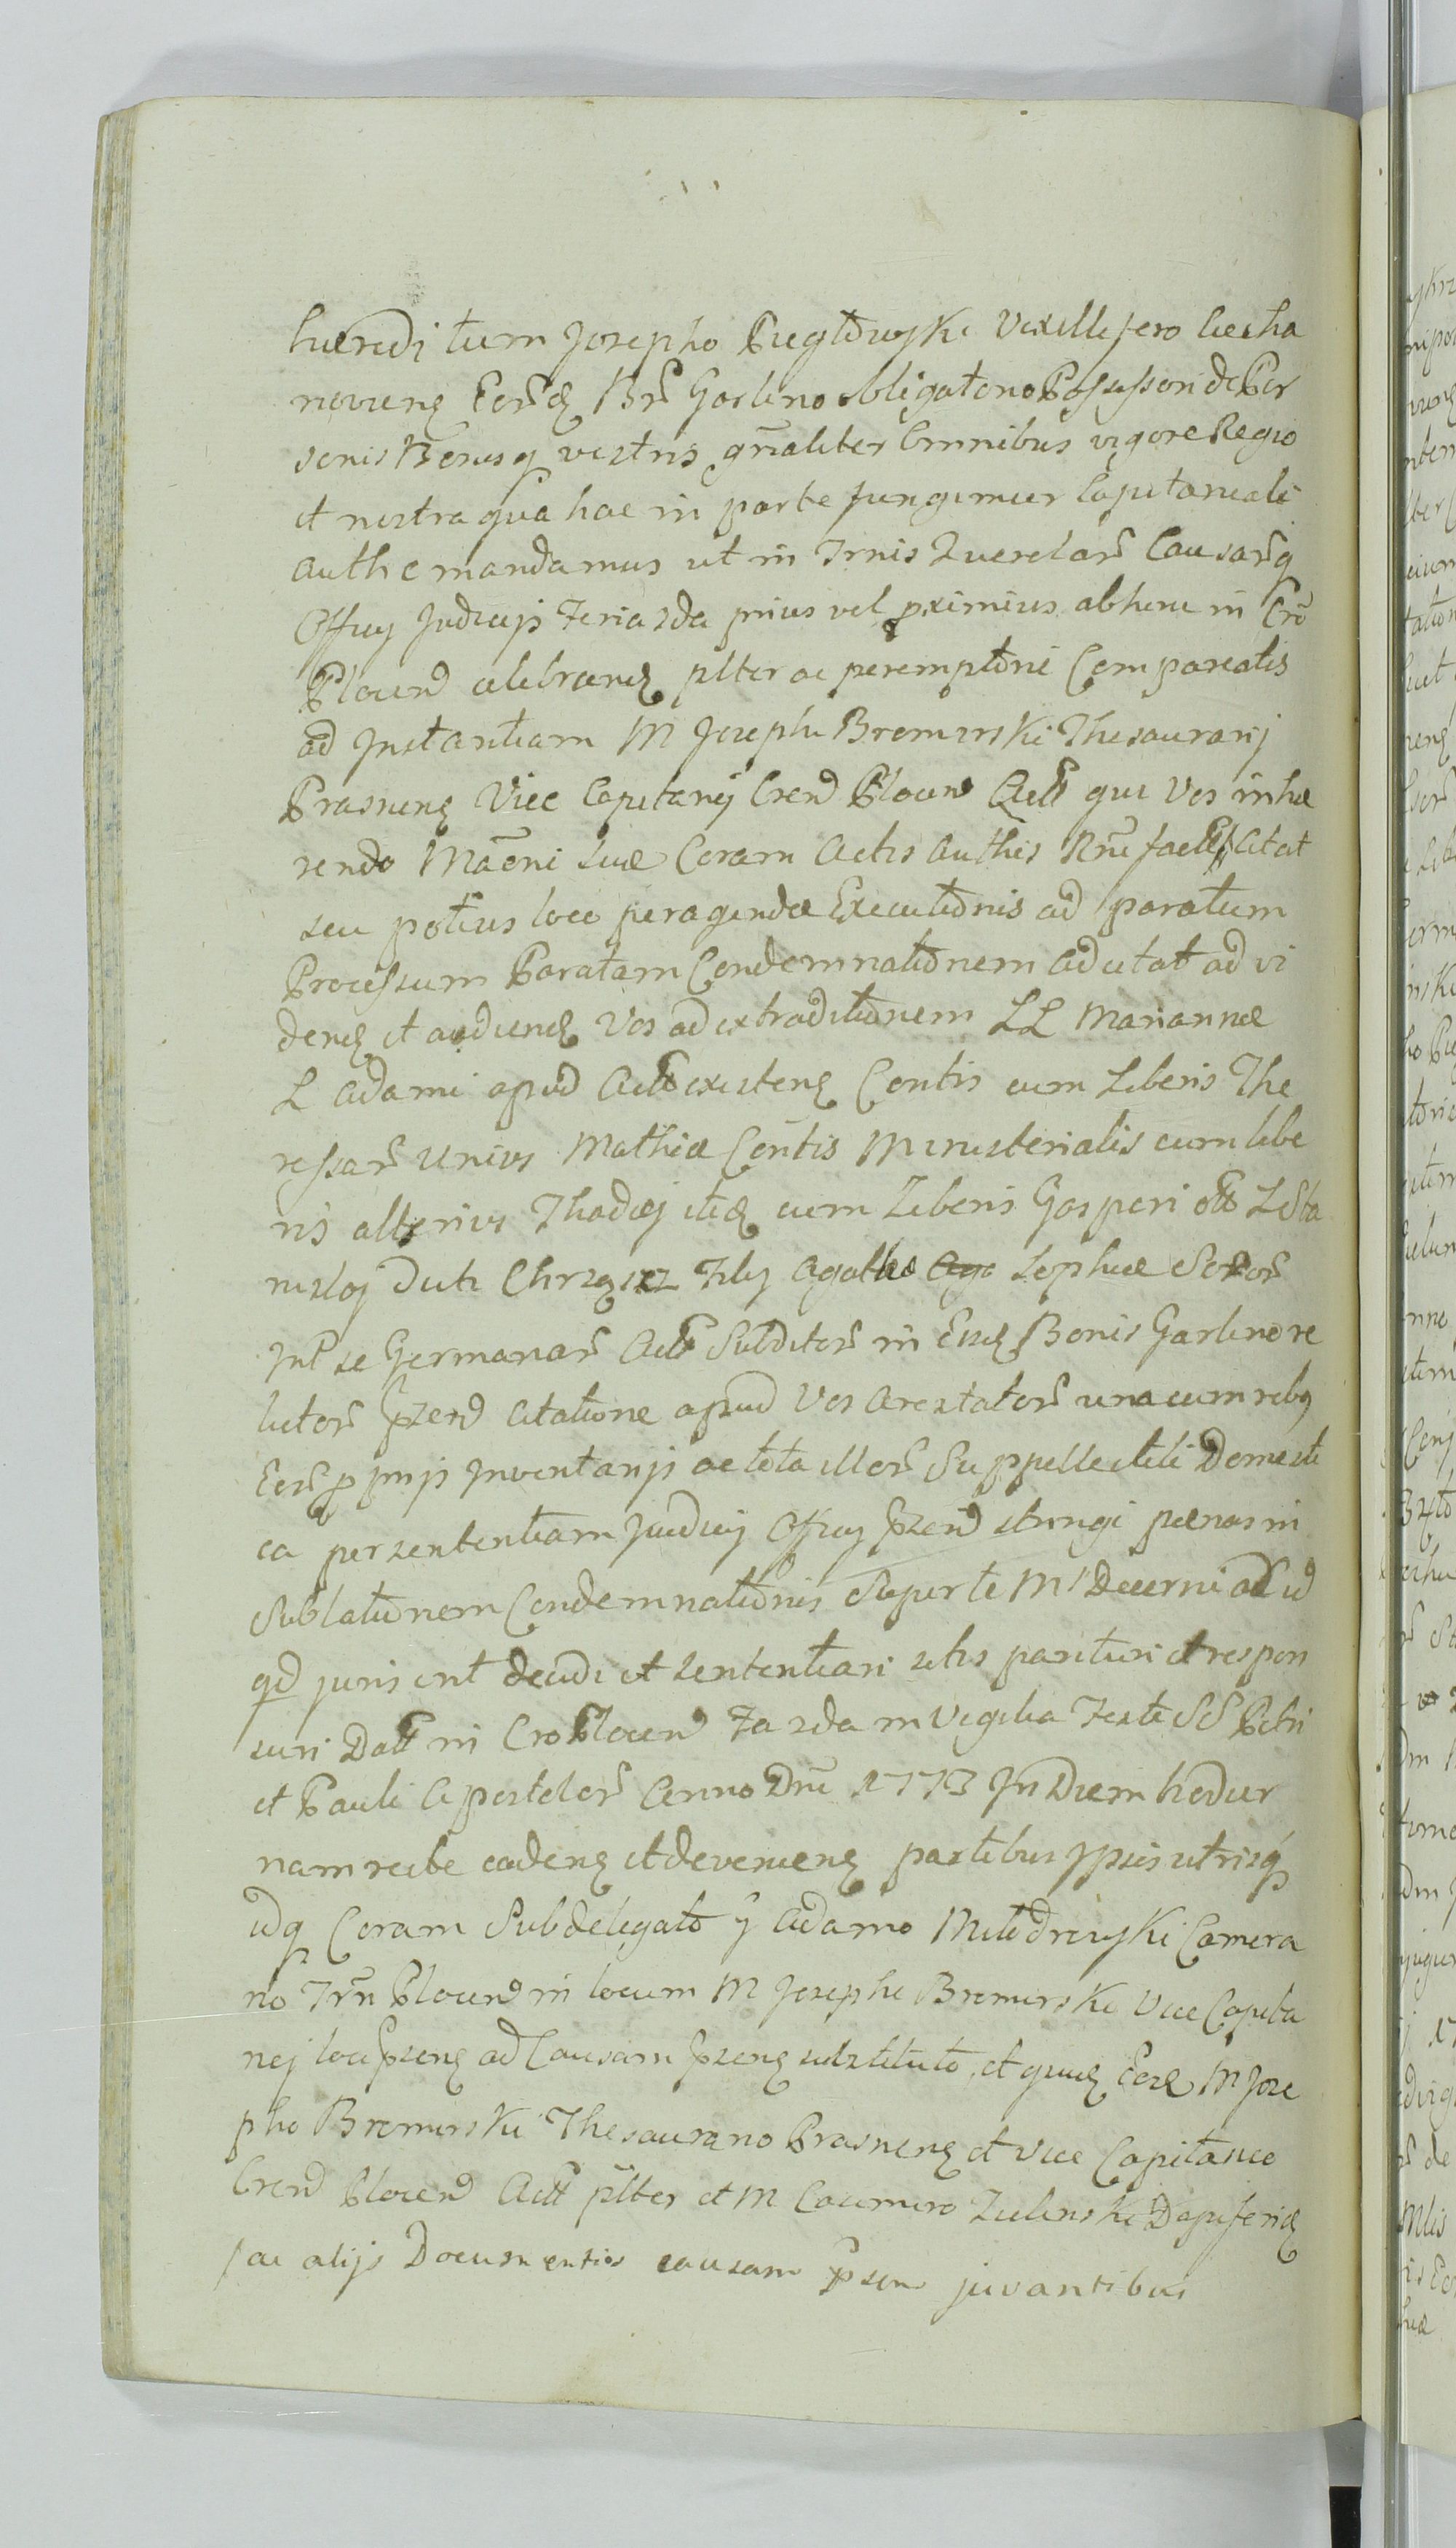 hæredi tum Josepho Pieglowski Vexillifero Ciecha
novien Eord Brr Garlino obligatorio Possessori de Per
sonis Bonisq vestris gnaliter Omnibus vigore Regio
et nostra qua hac in parte fungimur Capitaneali
Authe mandamus ut in Trnis Querelar Causarq
Officij Judicij Feria 2da prius vel proximius abhinc in Cro
Plocen celebran plter ac peremptorie Compareatis
ad Instantiam M Josephi Bromirski Thesaurarij
Prasnen Vice Capitanej Cren Plocen Act qui Vos inhæ
rendo Maoni suæ Coram Actis Authis Rne factæ Citat
seu potius loco peragendæ Executionis ad paratum
Processum Paratam Condemnationem adcitat ad vi
den et audien Vos ad extraditionem LL Mariannæ
L Adami apud Act existen Contis cum Liberis The
ressar Unius Mathiæ Contis Ministerialis cum libe
ris alterius Thadej itid cum Liberis Gasperi olt L Sta
nisloj Duti Chrząszcz Filij Agathæ Aga Sophiæ Soror
Int se Germanar Act Subditor in Eisd Bonis Garlino re
lictor przen Citatione apud Vos Arestator una cum rebq
Eor pprijs Inventarijs ac tota illor Suppellectili Domesti
ca per sententiam Judicij Officij przen stringi pænas in
Sublationem Condemnationis Superte Ml Decerni ad id
qd juris erit decidi et sententiari sitis parituri et respon
suri Datt in Cro Plocen Fa 2da in Vigilia Festi SS Petri
et Pauli Apostolor Anno Dni 1773 In Diem hodier
nam recte caden et devenien partibus ipsis utrisq
idq Coram Subdelegato G Adamo Miłodrowski Camera
rio Trn Plocen in locum M Josephi Bromirski Vice Capita
nej loci przen ad Causam przen substituto, et quid Eod M Jose
pho Bromirski Thesaurario Prasnen et Vice Capitaneo
Cren Plocen Actt plter et M Casimiro Zielinski Dapiferid
ac alijs Documentis causam przen juvantibus